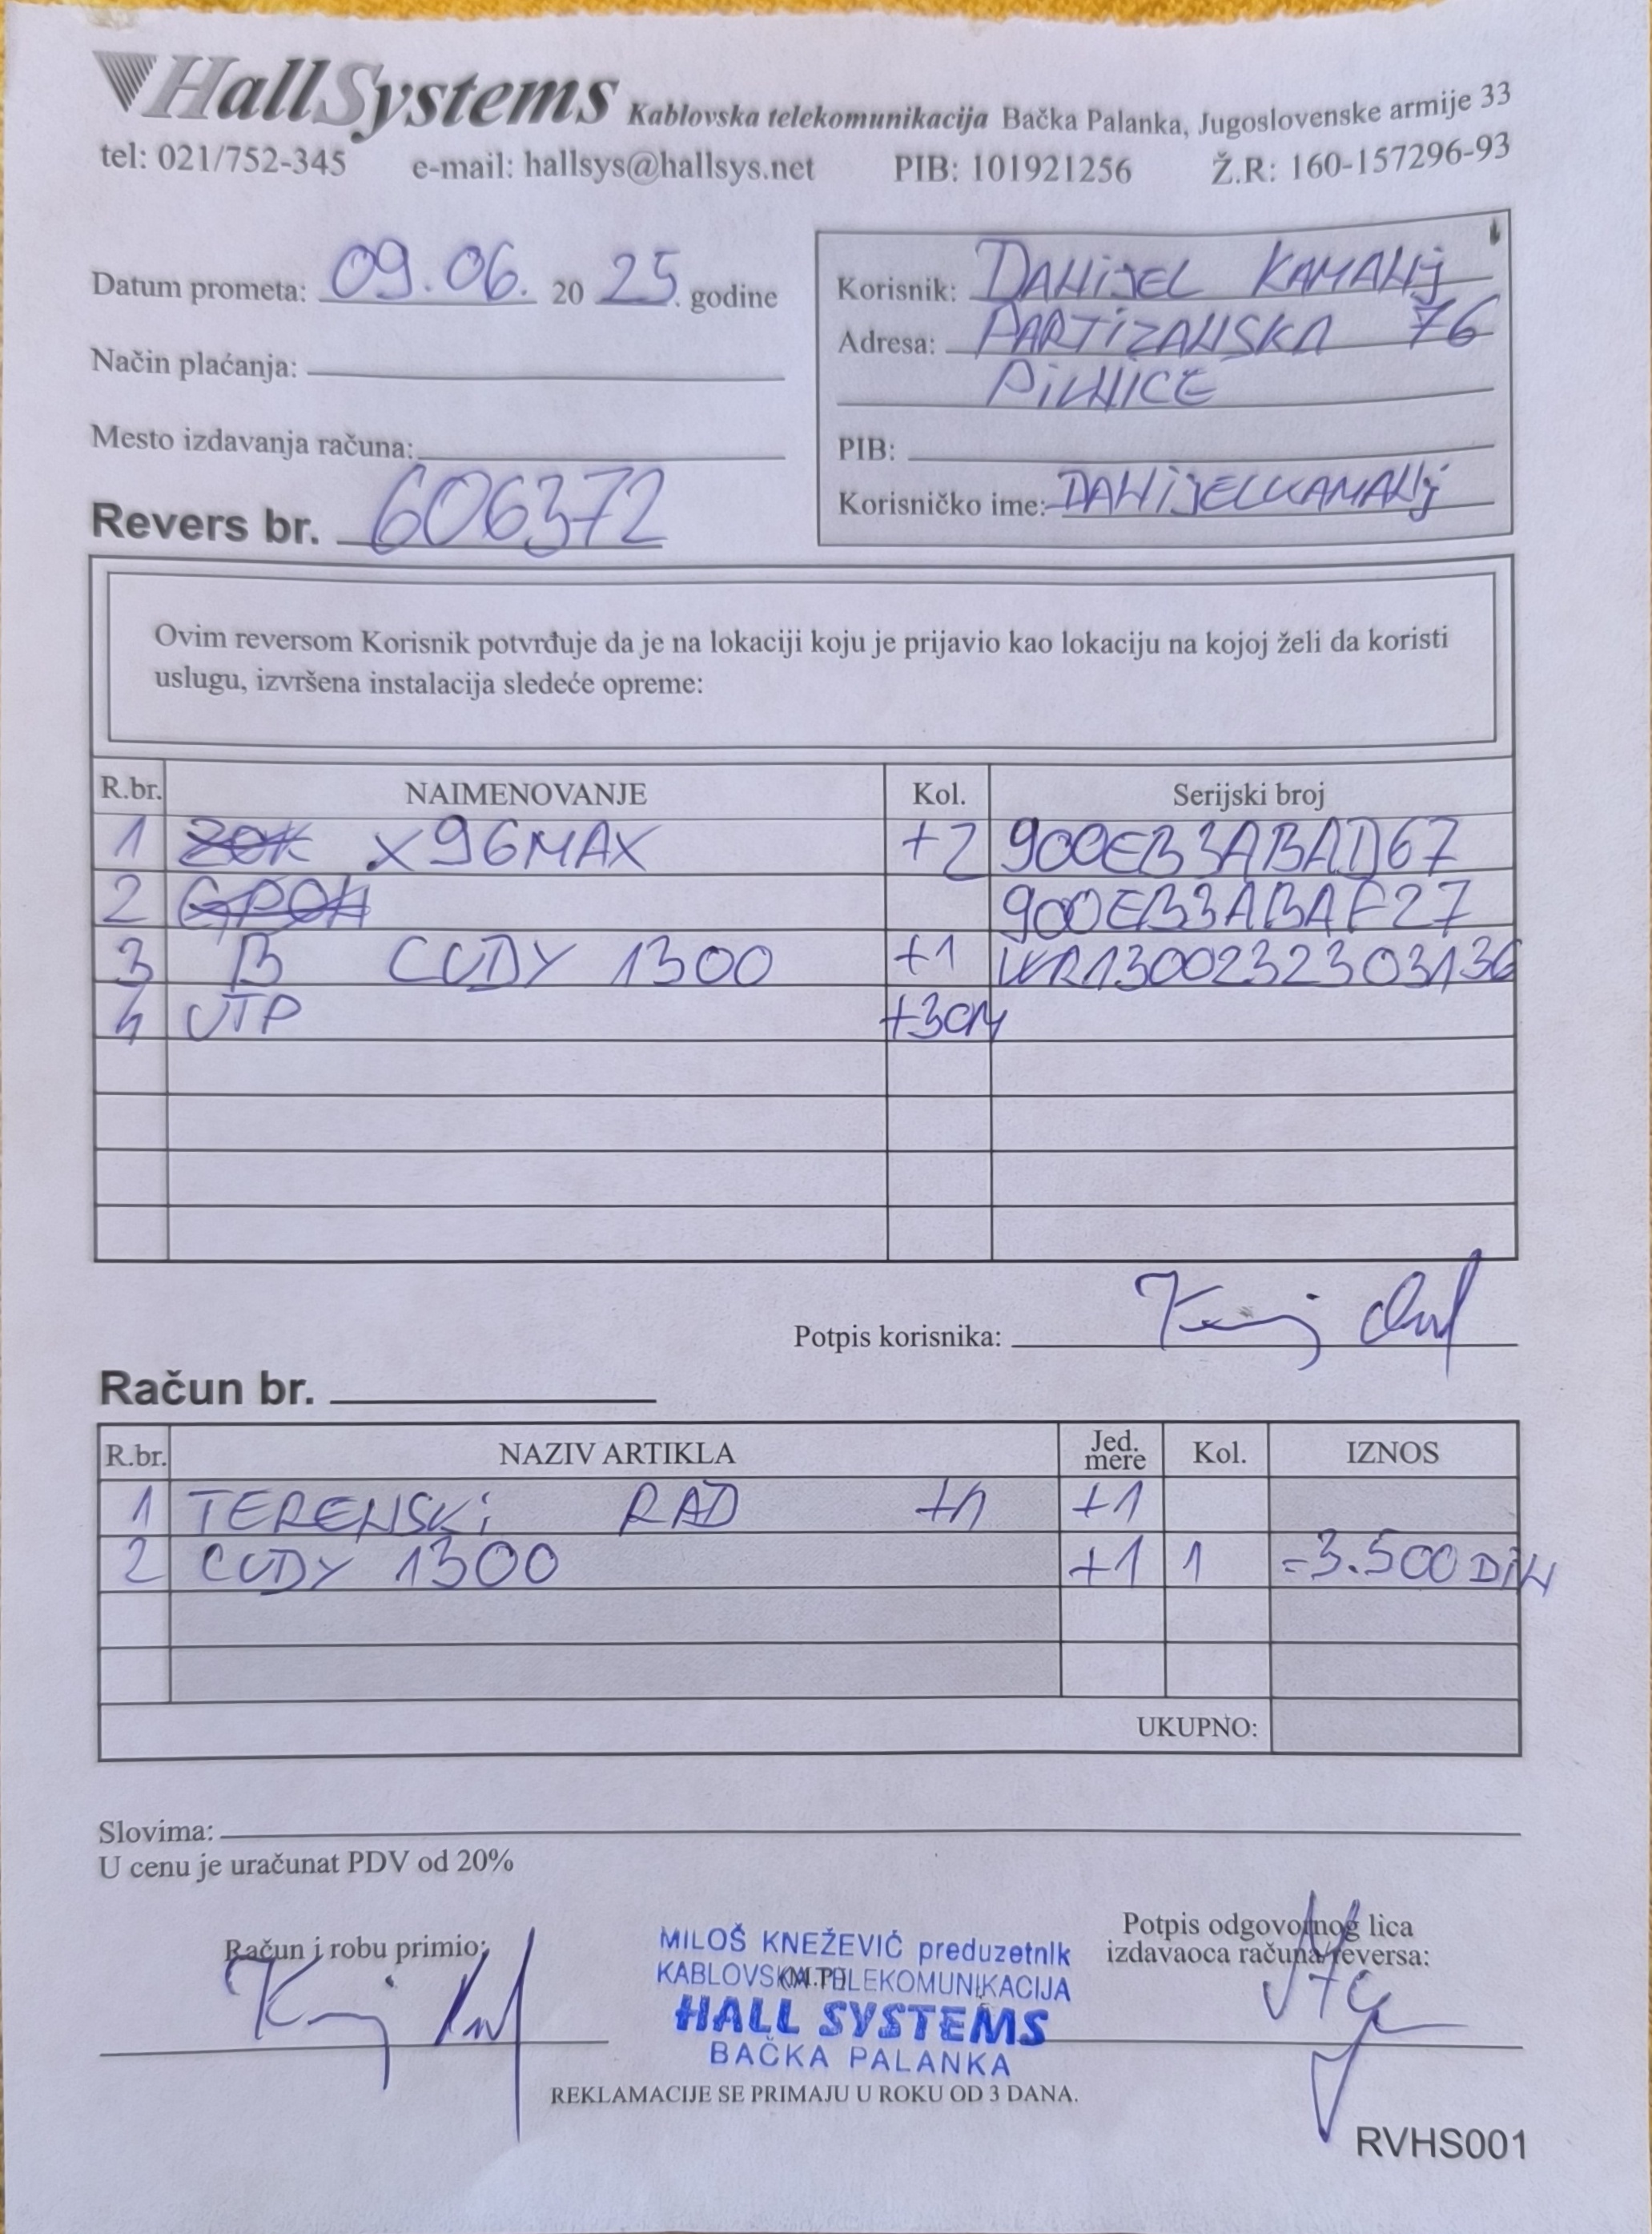 HallSystems Kablovska telekomunikacija Bačka Palanka, Jugoslovenske armije 33
tel: 021/752-345 e-mail: hallsys@hallsys.net PIB: 101921256 Ž.R: 160-157296-93
Datum prometa: 09.06. 20 25. godine
Način plaćanja:
Mesto izdavanja računa:
Revers br. 606372
Korisnik: DANIJEL KAMANJ
Adresa: PARTIZANSKA 76
PIVNICE
PIB:
Korisničko ime: DANIJELKAMANJ
Ovim reversom Korisnik potvrđuje da je na lokaciji koju je prijavio kao lokaciju na kojoj želi da koristi
uslugu, izvršena instalacija sledeće opreme:
R.br. NAIMENOVANJE Kol. Serijski broj
1 X96MAX +2 900EB3ABAD67
2 GPON 900EB3ABAF27
3 B CUDY 1300 +1 WR1300232303136
4 UTP +30M
Potpis korisnika:
Račun br.
R.br. NAZIV ARTIKLA Jed. mere Kol. IZNOS
1 TERENSKI RAD +1 +1
2 CUDY 1300 +1 1 =3.500 DIN
UKUPNO:
Slovima:
U cenu je uračunat PDV od 20%
Račun i robu primio:
MILOŠ KNEŽEVIĆ preduzetnik
KABLOVSKA TELEKOMUNIKACIJA
(M.P.)
HALL SYSTEMS
BAČKA PALANKA
Potpis odgovornog lica
izdavaoca računa/reversa:
REKLAMACIJE SE PRIMAJU U ROKU OD 3 DANA.
RVHS001